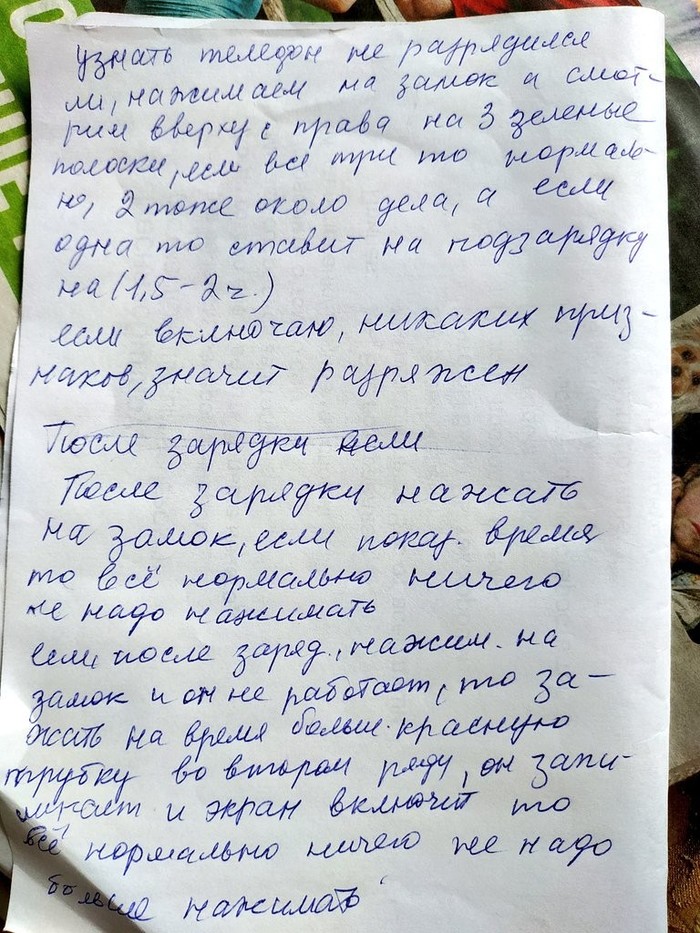 узнать телефон не разрядился
ли, нажимаем на замок а смот-
рим вверху с права на 3 зеленые
полоски, если все три то нормаль-
но, 2 тоже около дела, а если
одна то ставит на подзарядку
на (1,5-2 ч.)
если включаю, никаких приз-
наков, значит разряжен
После зарядки если
После зарядки нажать
на замок, если показ. время
то всё нормально ничего
не надо нажимать
если после заряд., нажим. на
замок и он не работает, то за-
жать на время больш. красную
трубку во втором ряду, он запи-
ликает и экран включит то
всё нормально ничего не надо
больше нажимать